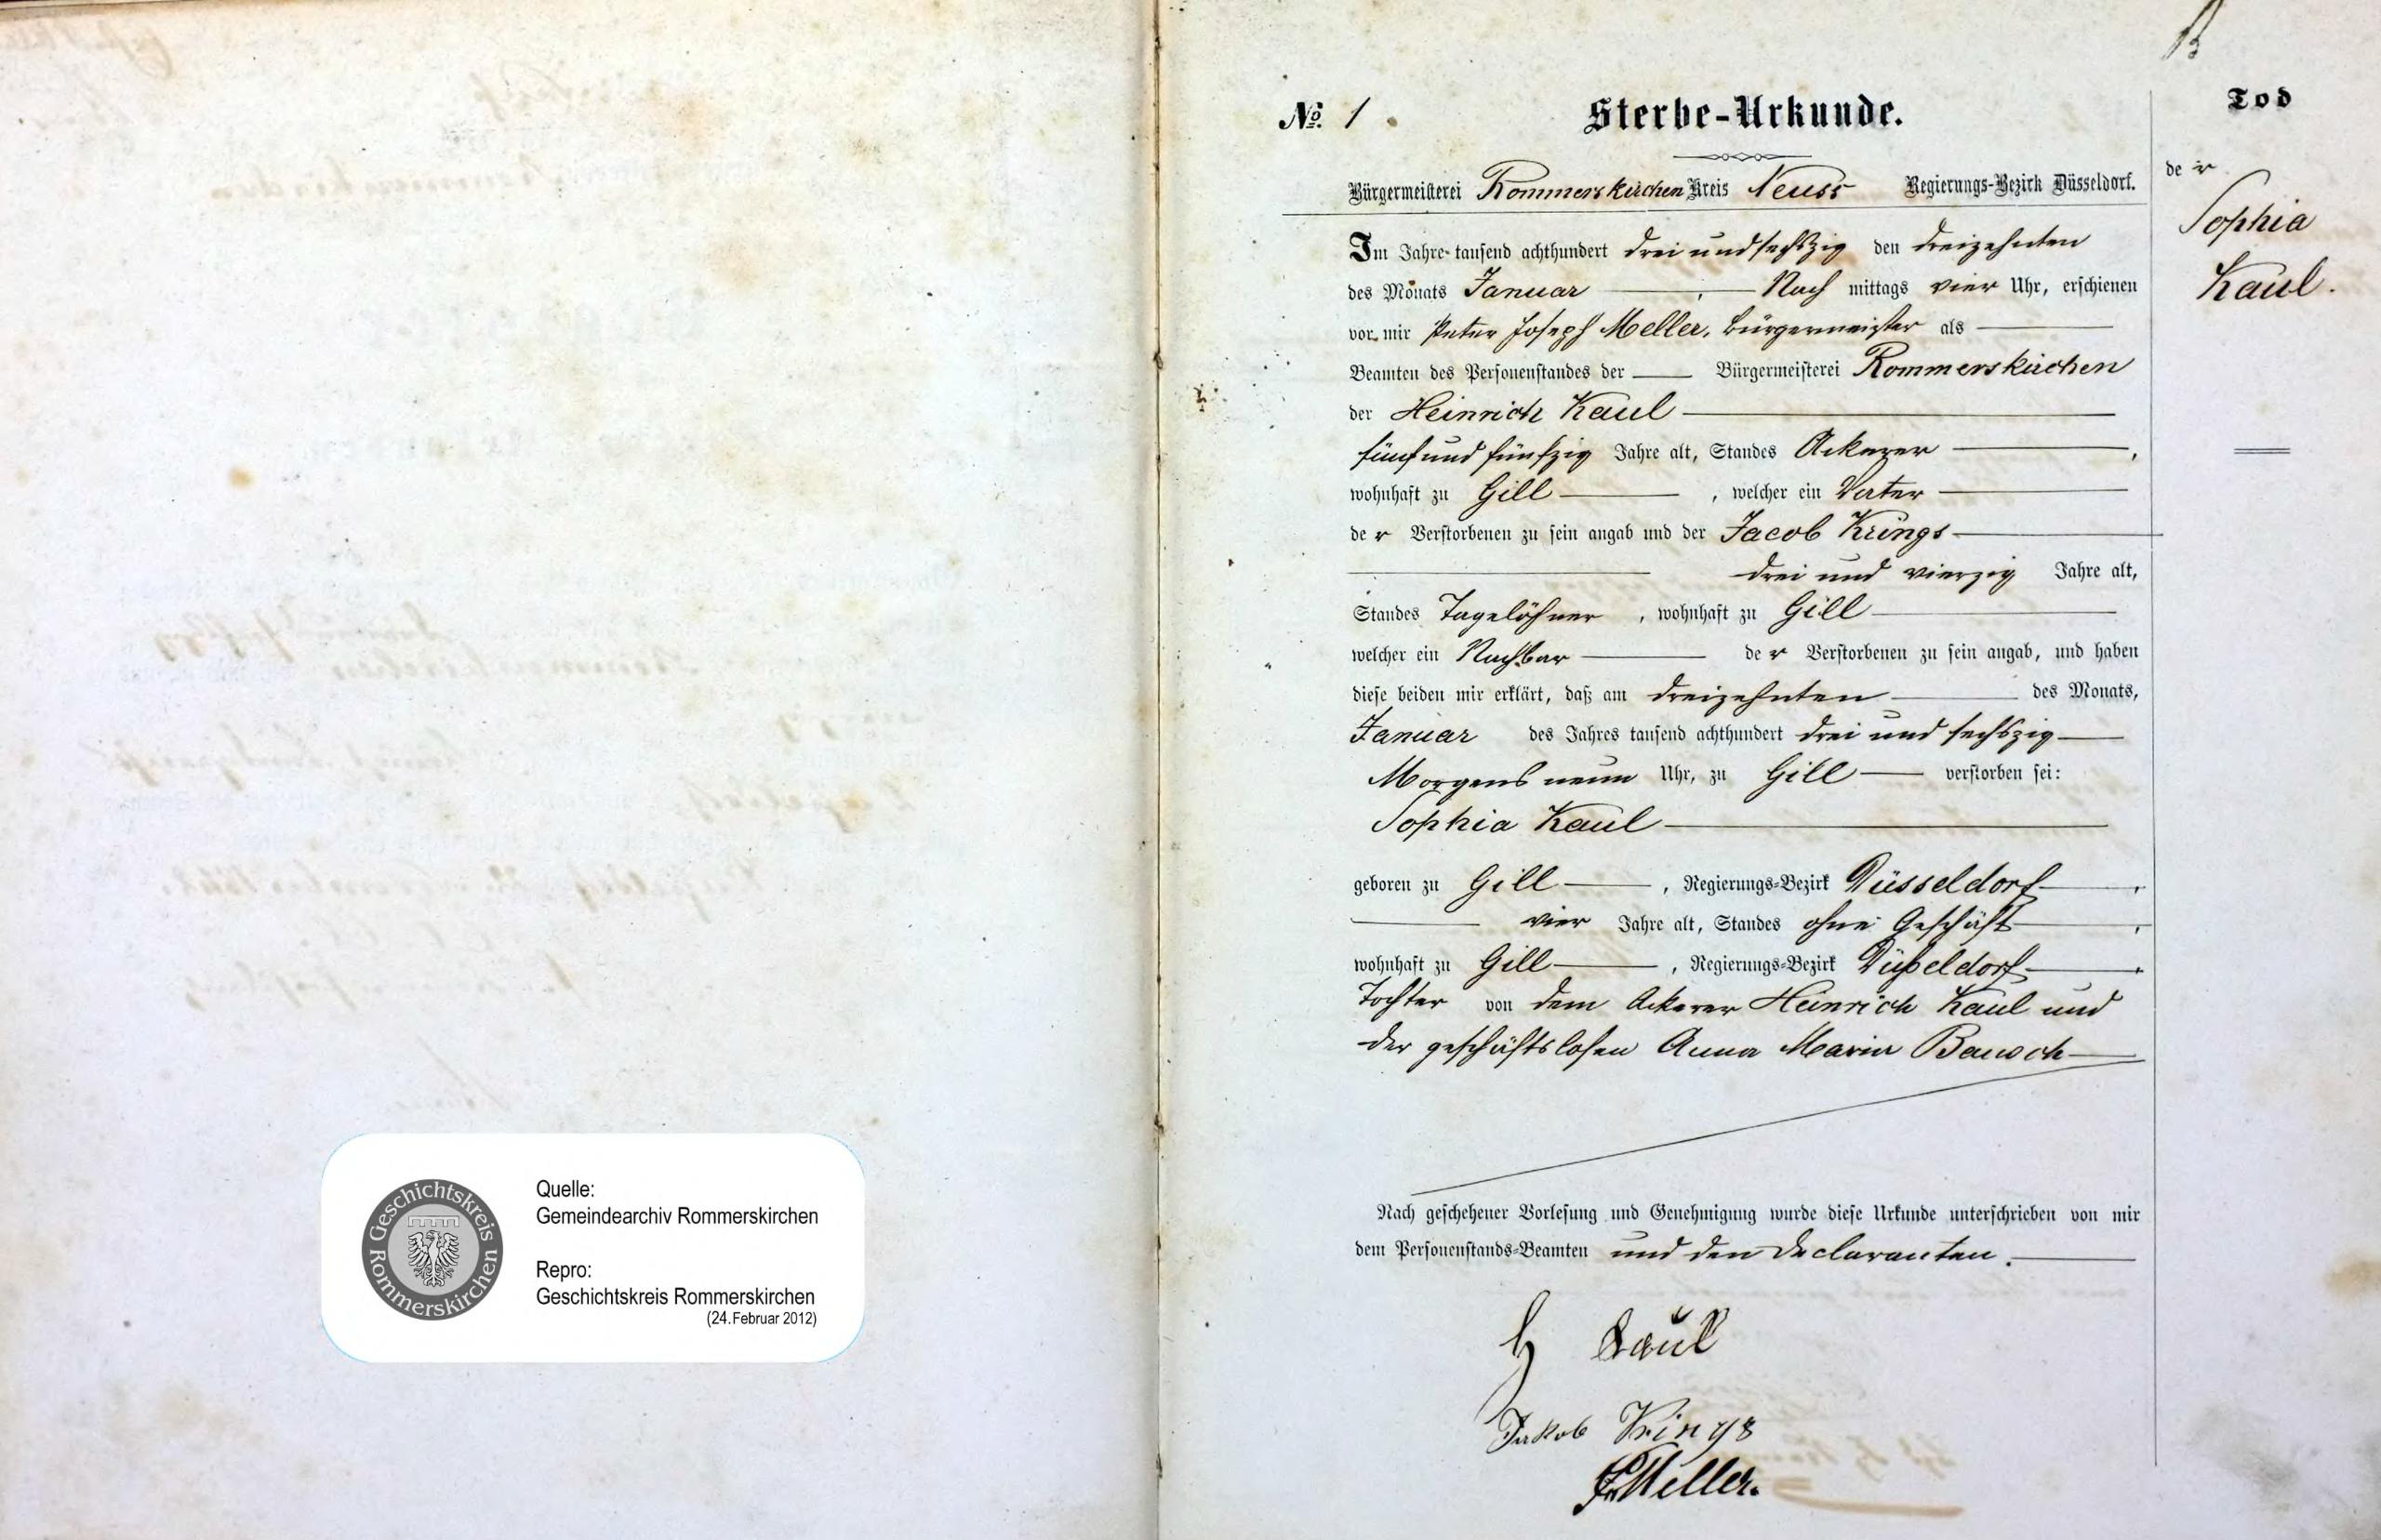 Geschichtskreis Rommerskirchen
Quelle:
Gemeindearchiv Rommerskirchen
Repro:
Geschichtskreis Rommerskirchen
(24.Februar 2012)
No. 1.
Sterbe-Urkunde.
Bürgermeisterei Rommerskirchen Kreis Neuss Regierungs-Bezirk Düsseldorf.
Im Jahre tausend achthundert drei und sechszig den dreizehnten
des Monats Januar, Nach mittags vier Uhr, erschienen
vor mir Peter Joseph Meller, Bürgermeister als
Beamten des Personenstandes der Bürgermeisterei Rommerskirchen
der Heinrich Kaul
fünf und fünfzig Jahre alt, Standes Ackerer,
wohnhaft zu Gill, welcher ein Vater
der Verstorbenen zu sein angab und der Jacob Krings
drei und vierzig Jahre alt,
Standes Tagelöhner, wohnhaft zu Gill
welcher ein Nachbar der Verstorbenen zu sein angab, und haben
diese beiden mir erklärt, daß am dreizehnten des Monats,
Januar des Jahres tausend achthundert drei und sechszig
Morgens neun Uhr, zu Gill verstorben sei:
Sophia Kaul
geboren zu Gill, Regierungs-Bezirk Düsseldorf,
vier Jahre alt, Standes ohne Geschäft,
wohnhaft zu Gill, Regierungs-Bezirk Düßeldorf,
Tochter von dem Ackerer Heinrich Kaul und
der geschäftslosen Anna Maria Bausch
Nach geschehener Vorlesung und Genehmigung wurde diese Urkunde unterschrieben von mir
dem Personenstands-Beamten und den Declaranten.
H Kaul
Jakob Krings
Meller.
Tod
der
Sophia
Kaul.